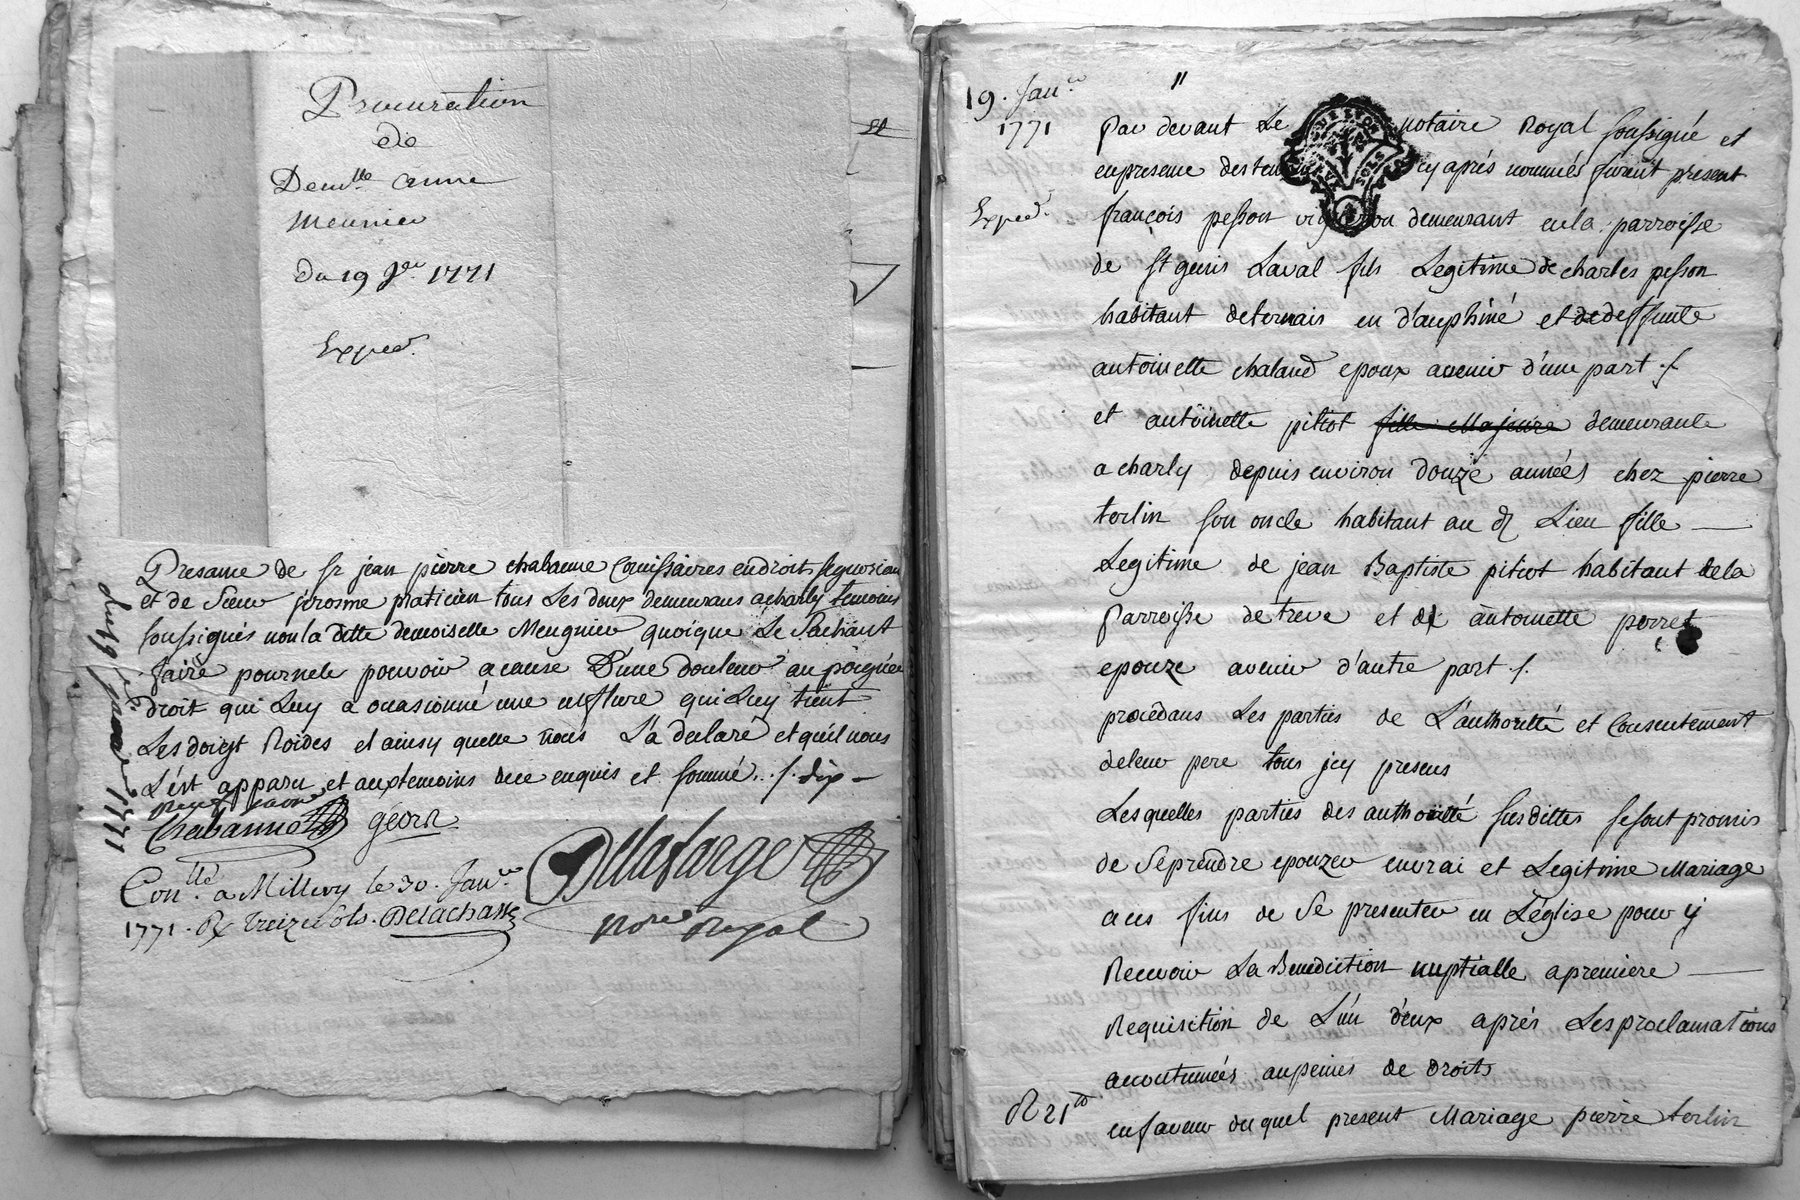 Procuration
de
Demlle anne
Meunier
du 19 Jer 1771
Exped.
Presance de sr jean pierre chabanne Comissaires en droits segneuriau
et de Sieur jerosme praticien tous Les deux demeurans a charly temoins
soussignés non la ditte demoiselle Meugnier quoique Le Sachant
faire pour ne le pouvoir a cause D'une douleur au poignée
droit qui Luy a occasionné une enflure qui Luy tient
Les doigt Roides et ainsy quelle nous L'a declaré et quil nous
L'est apparu et aux temoins de ce enquis et sommé ./. dix
neuf janver
Chabanne
Delafarge
Conllé a Millery le 30. Janer
1771. Rx treize sols. Delachasse
Nore Royal
du 19 janvier 1771
19. Janer
1771
Exped.
Par devant Le notaire Royal soussigné et
en presence des tem cy aprés nommés furent present
françois pesson vigneron demeurant en la parroisse
de st genis Laval fils Legitime de charles pesson
habitant de ternais en d'auphiné et de deffunte
antoinette chaland epoux avenir d'une part ./.
et antoinette pitiot fille Majeure demeurante
a charly depuis environ douze années chez pierre
terlin son oncle habitant au dt Lieu fille
Legitime de jean Baptiste pitiot habitant de la
Parroisse de treve et de antoinette perret
epouze avenir d'autre part ./.
procédans Les parties de L'authorité et Consentement
de leur pere tous jcy presens
Les quelles parties des authorité susdittes se sont promis
de Se prendre epouzer en vrai et Legitime Mariage
a ces fins de Se presenter en L'église pour y
Recevoir La Benediction nuptialle a premiere
Requisition de L'un d'eux aprés Les proclamations
accoutumées aux peines de droits
en faveur du quel present Mariage pierre terlin
R 21to